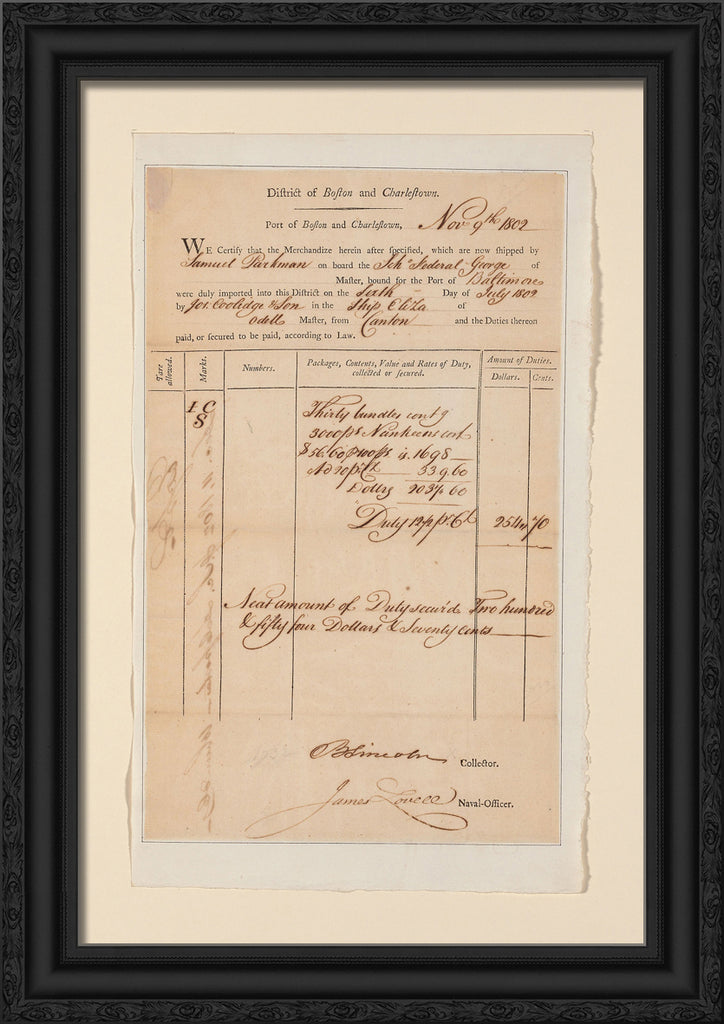 District of Boston and Charlestown.
Port of Boston and Charlestown, Nov 9th 1802
WE Certify that the Merchandize herein after specified, which are now shipped by
Samuel Parkman on board the Schr Federal George of
Master, bound for the Port of Baltimore
were duly imported into this District on the sixth Day of July 1802
by Jos. Coolidge & Son in the Ship Eliza of
Odell Master, from Canton and the Duties thereon
paid, or secured to be paid, according to Law.
Tare allowed. Marks. Numbers. Packages, Contents, Value and Rates of Duty, collected or secured. Amount of Duties.
Dollars. Cents.
I C
S
Thirty bundles contg
3000 ps Nankeens cost
$56.60 p 100 ps is. 1698
Ad 20 pr Ct 339 60
Dollrs 2037 60
Duty 12½ pr Ct 254 70
Neat amount of Duty secur'd Two hundred
& fifty four Dollars & Seventy Cents
B Lincoln Collector.
James Lovell Naval-Officer.